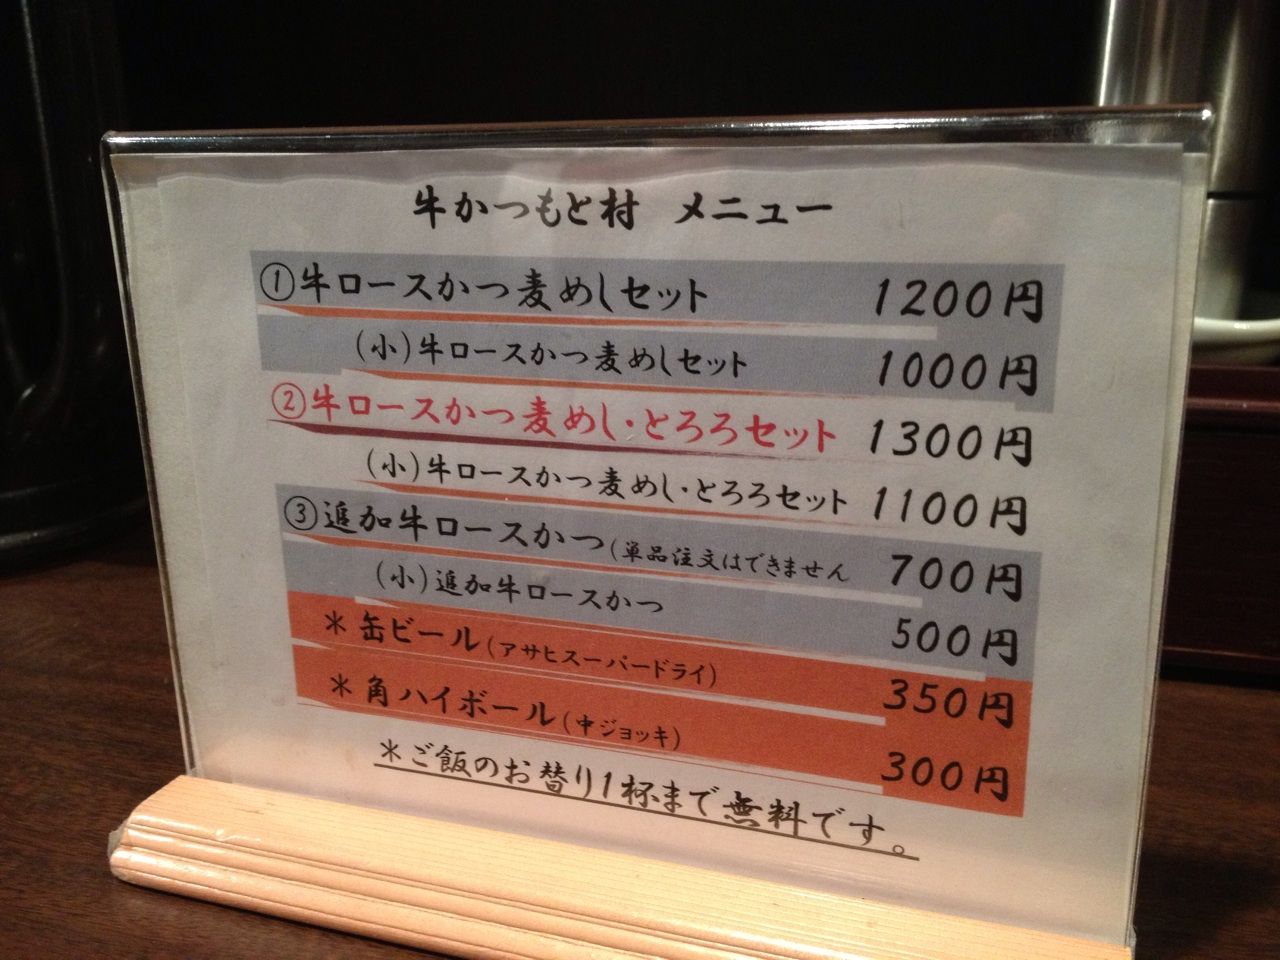 牛かつもと村 メニュー
①牛ロースかつ麦めしセット 1200円
(小)牛ロースかつ麦めしセット 1000円
②牛ロースかつ麦めし・とろろセット 1300円
(小)牛ロースかつ麦めし・とろろセット 1100円
③追加牛ロースかつ(単品注文はできません 700円
(小)追加牛ロースかつ 500円
＊缶ビール(アサヒスーパードライ) 350円
＊角ハイボール(中ジョッキ) 300円
＊ご飯のお替り1杯まで無料です。